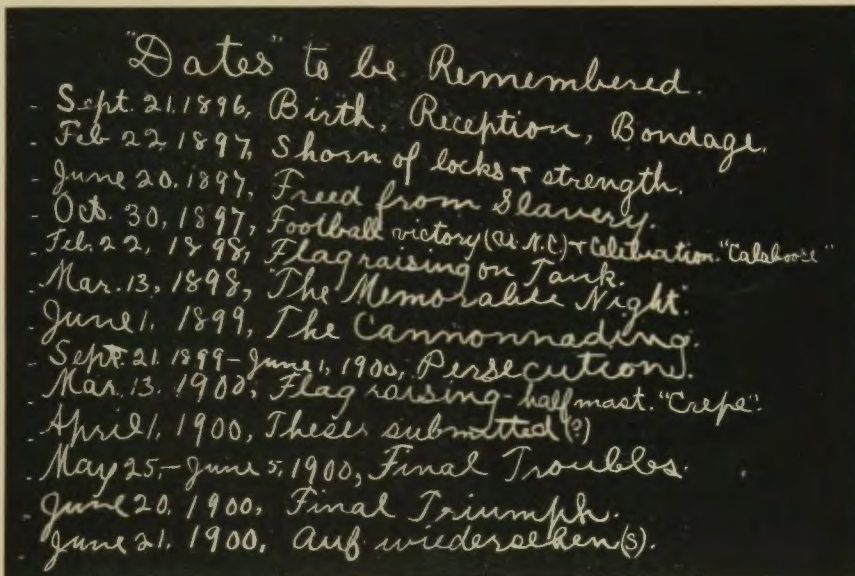 "Dates" to be Remembered.
- Sept. 21. 1896, Birth, Reception, Bondage.
- Feb 22, 1897, Shorn of locks & strength.
- June 20. 1897, Freed from Slavery.
- Oct. 30, 1897, Football victory (U.N.C.) & Celebration. "Calaboose"
- Feb. 22, 1898, Flag raising on Tank.
- Mar. 13, 1898, The Memorable Night.
- June 1, 1899, The Cannonnading.
- Sept. 21. 1899 - June 1, 1900, Persecution.
- Mar. 13. 1900, Flag raising - half mast. "Crepe".
- April 1, 1900, Theses submitted (?)
- May 25, - June 5, 1900, Final Troubles.
- June 20, 1900, Final Triumph.
- June 21, 1900, Auf wiedersehen(s).